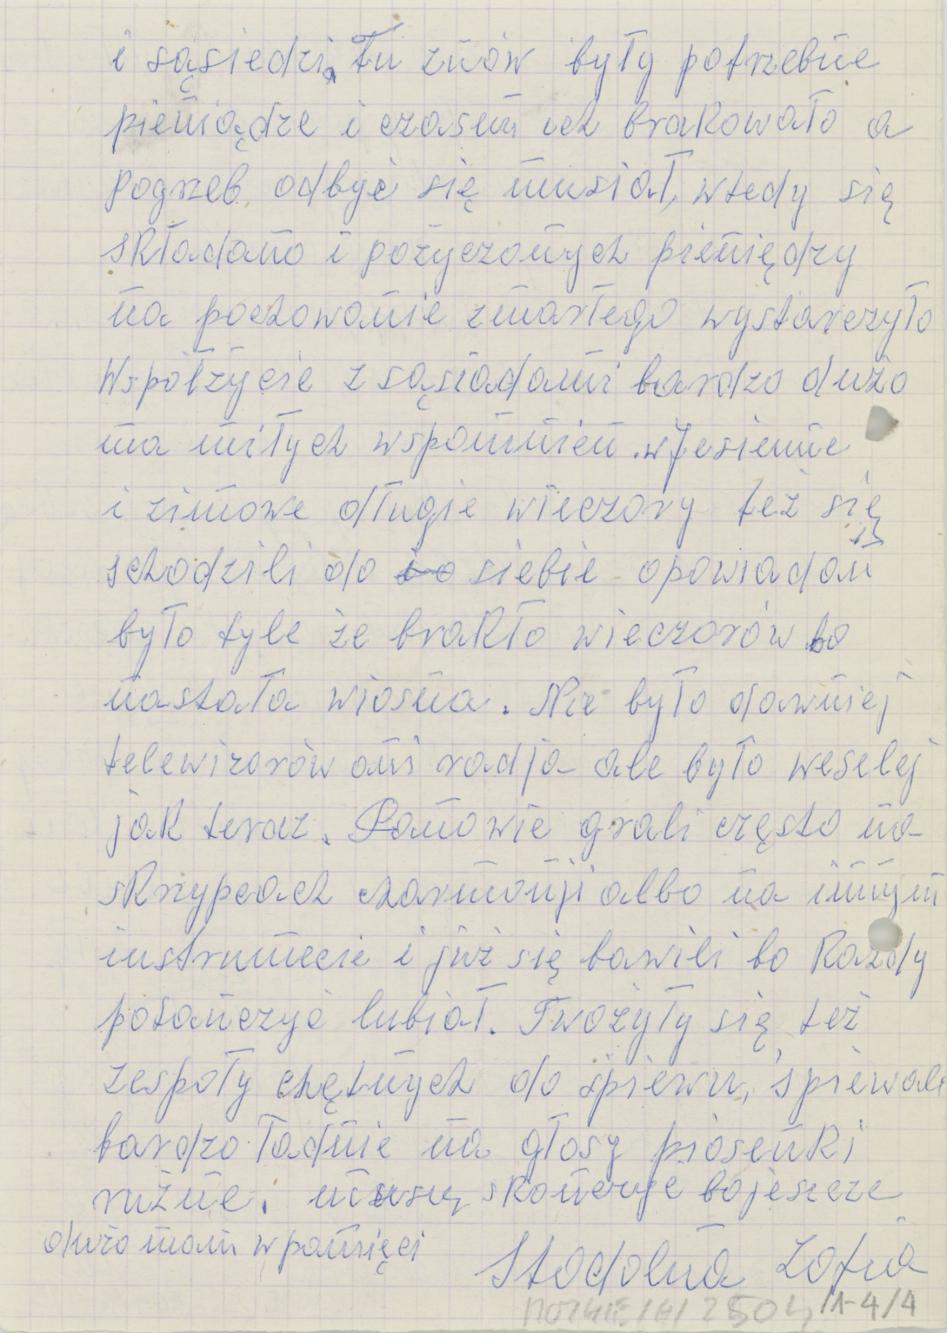 i sąsiedzi. Tu znów były potrzebne
pieniądze i czasem ich brakowało a
pogrzeb odbyć się musiał, wtedy się
składano i pożyczonych pieniędzy
na pochowanie zmarłego wystarczyło
Współżycie z sąsiadami bardzo dużo
ma miłych wspomnień. w Jesienne
i zimowe długie wieczory też się
schodzili do siebie opowiadań
było tyle że brakło wieczorów bo
nastała wiosna. Nie było dawniej
telewizorów ani radja ale było weselej
jak teraz. Panowie grali często na
skrzypcach charmonji albo na innym
instrumecie i już się bawili bo każdy
potańczyć lubiał. Twożyły się też
zespoły chętnych do śpiewu, śpiewali
bardzo ładnie na głosy piosenki
rużne. muszę skończyć bo jeszcze
dużo mam w pamięci
Stodolna Zofia
2504 /1-4/4